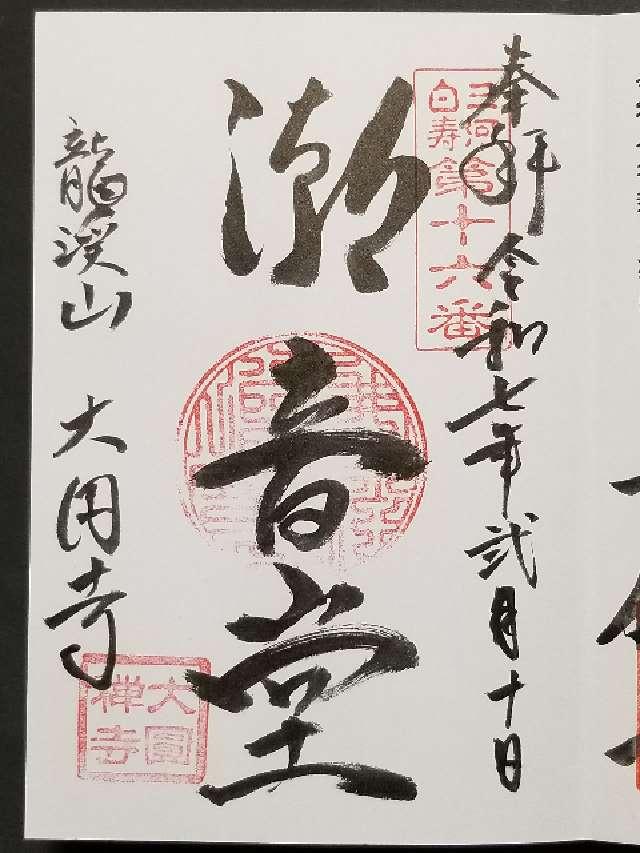 奉拝 令和七年弐月十日
三河
白寿 第十六番
潮音堂
龍渓山 大圓寺
大圓
禅寺